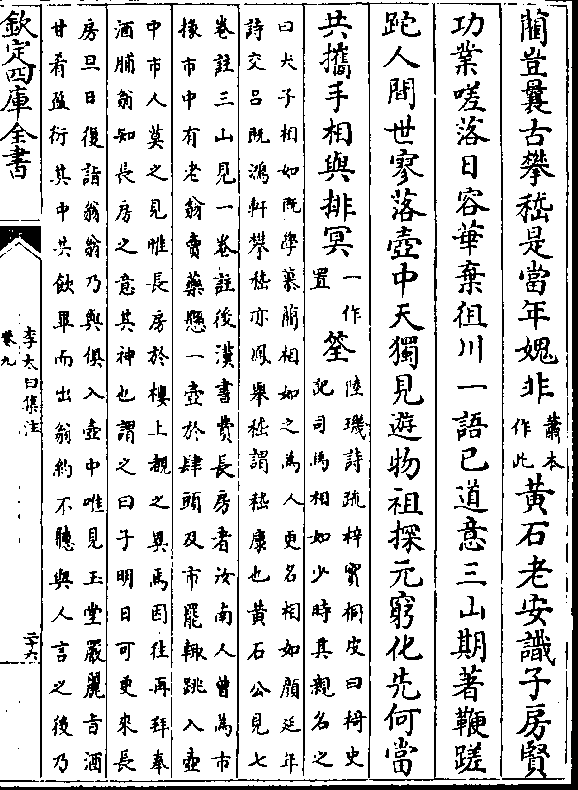 蘭豈曩古攀嵇是當年媿非蕭本作此黃石老安識子房賢
功業嗟落日容華棄徂川一語已道意三山期著鞭蹉
跎人間世寥落壺中天獨見遊物祖探元窮化先何當
共攜手相與排冥一作置筌陸璣詩疏梓實桐皮曰椅史記司馬相如少時其親名之
曰犬子相如既學慕蘭相如之為人更名相如顔延年
詩交呂既鴻軒攀嵇亦鳳舉嵇謂嵇康也黃石公見七
卷註三山見一卷註後漢書費長房者汝南人曾為市
掾市中有老翁賣藥懸一壺於肆頭及市罷輒跳入壺
中市人莫之見惟長房於樓上覩之異焉因往再拜奉
酒脯翁知長房之意其神也謂之曰子明日可更來長
房旦日復詣翁翁乃與俱入壺中唯見玉堂嚴麗旨酒
甘肴盈衍其中共飲畢而出翁約不聽與人言之後乃
欽定四庫全書
李太白集注
卷九
二十六